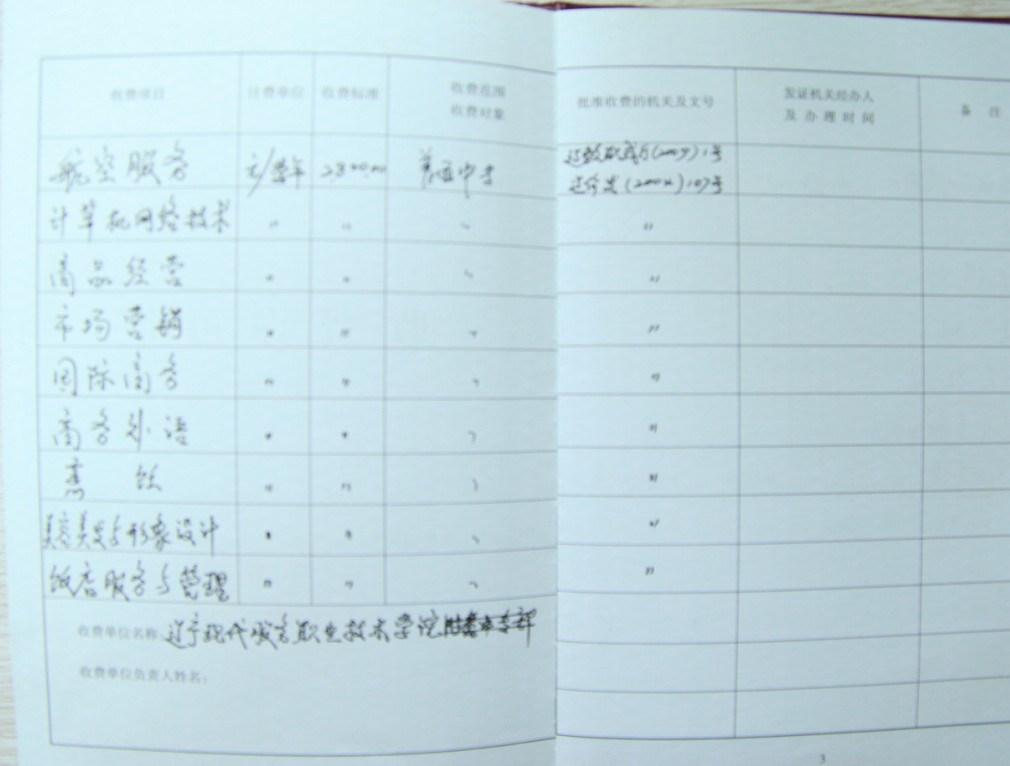 收费项目 计费单位 收费标准 收费范围 收费对象 批准收费的机关及文号 发证机关经办人 及办理时间 备 注
航空服务 元/学年 2800.00 普通中专
辽价发 107号
计算机网络技术 〃 〃 〃 〃
商品经营 〃 〃 〃 〃
市场营销 〃 〃 〃 〃
国际商务 〃 〃 〃 〃
商务外语 〃 〃 〃 〃
烹 饪 〃 〃 〃 〃
美容美发与形象设计 〃 〃 〃 〃
饭店服务与管理 〃 〃 〃 〃
收费单位名称:辽宁现代服务职业技术学院
收费单位负责人姓名:
3